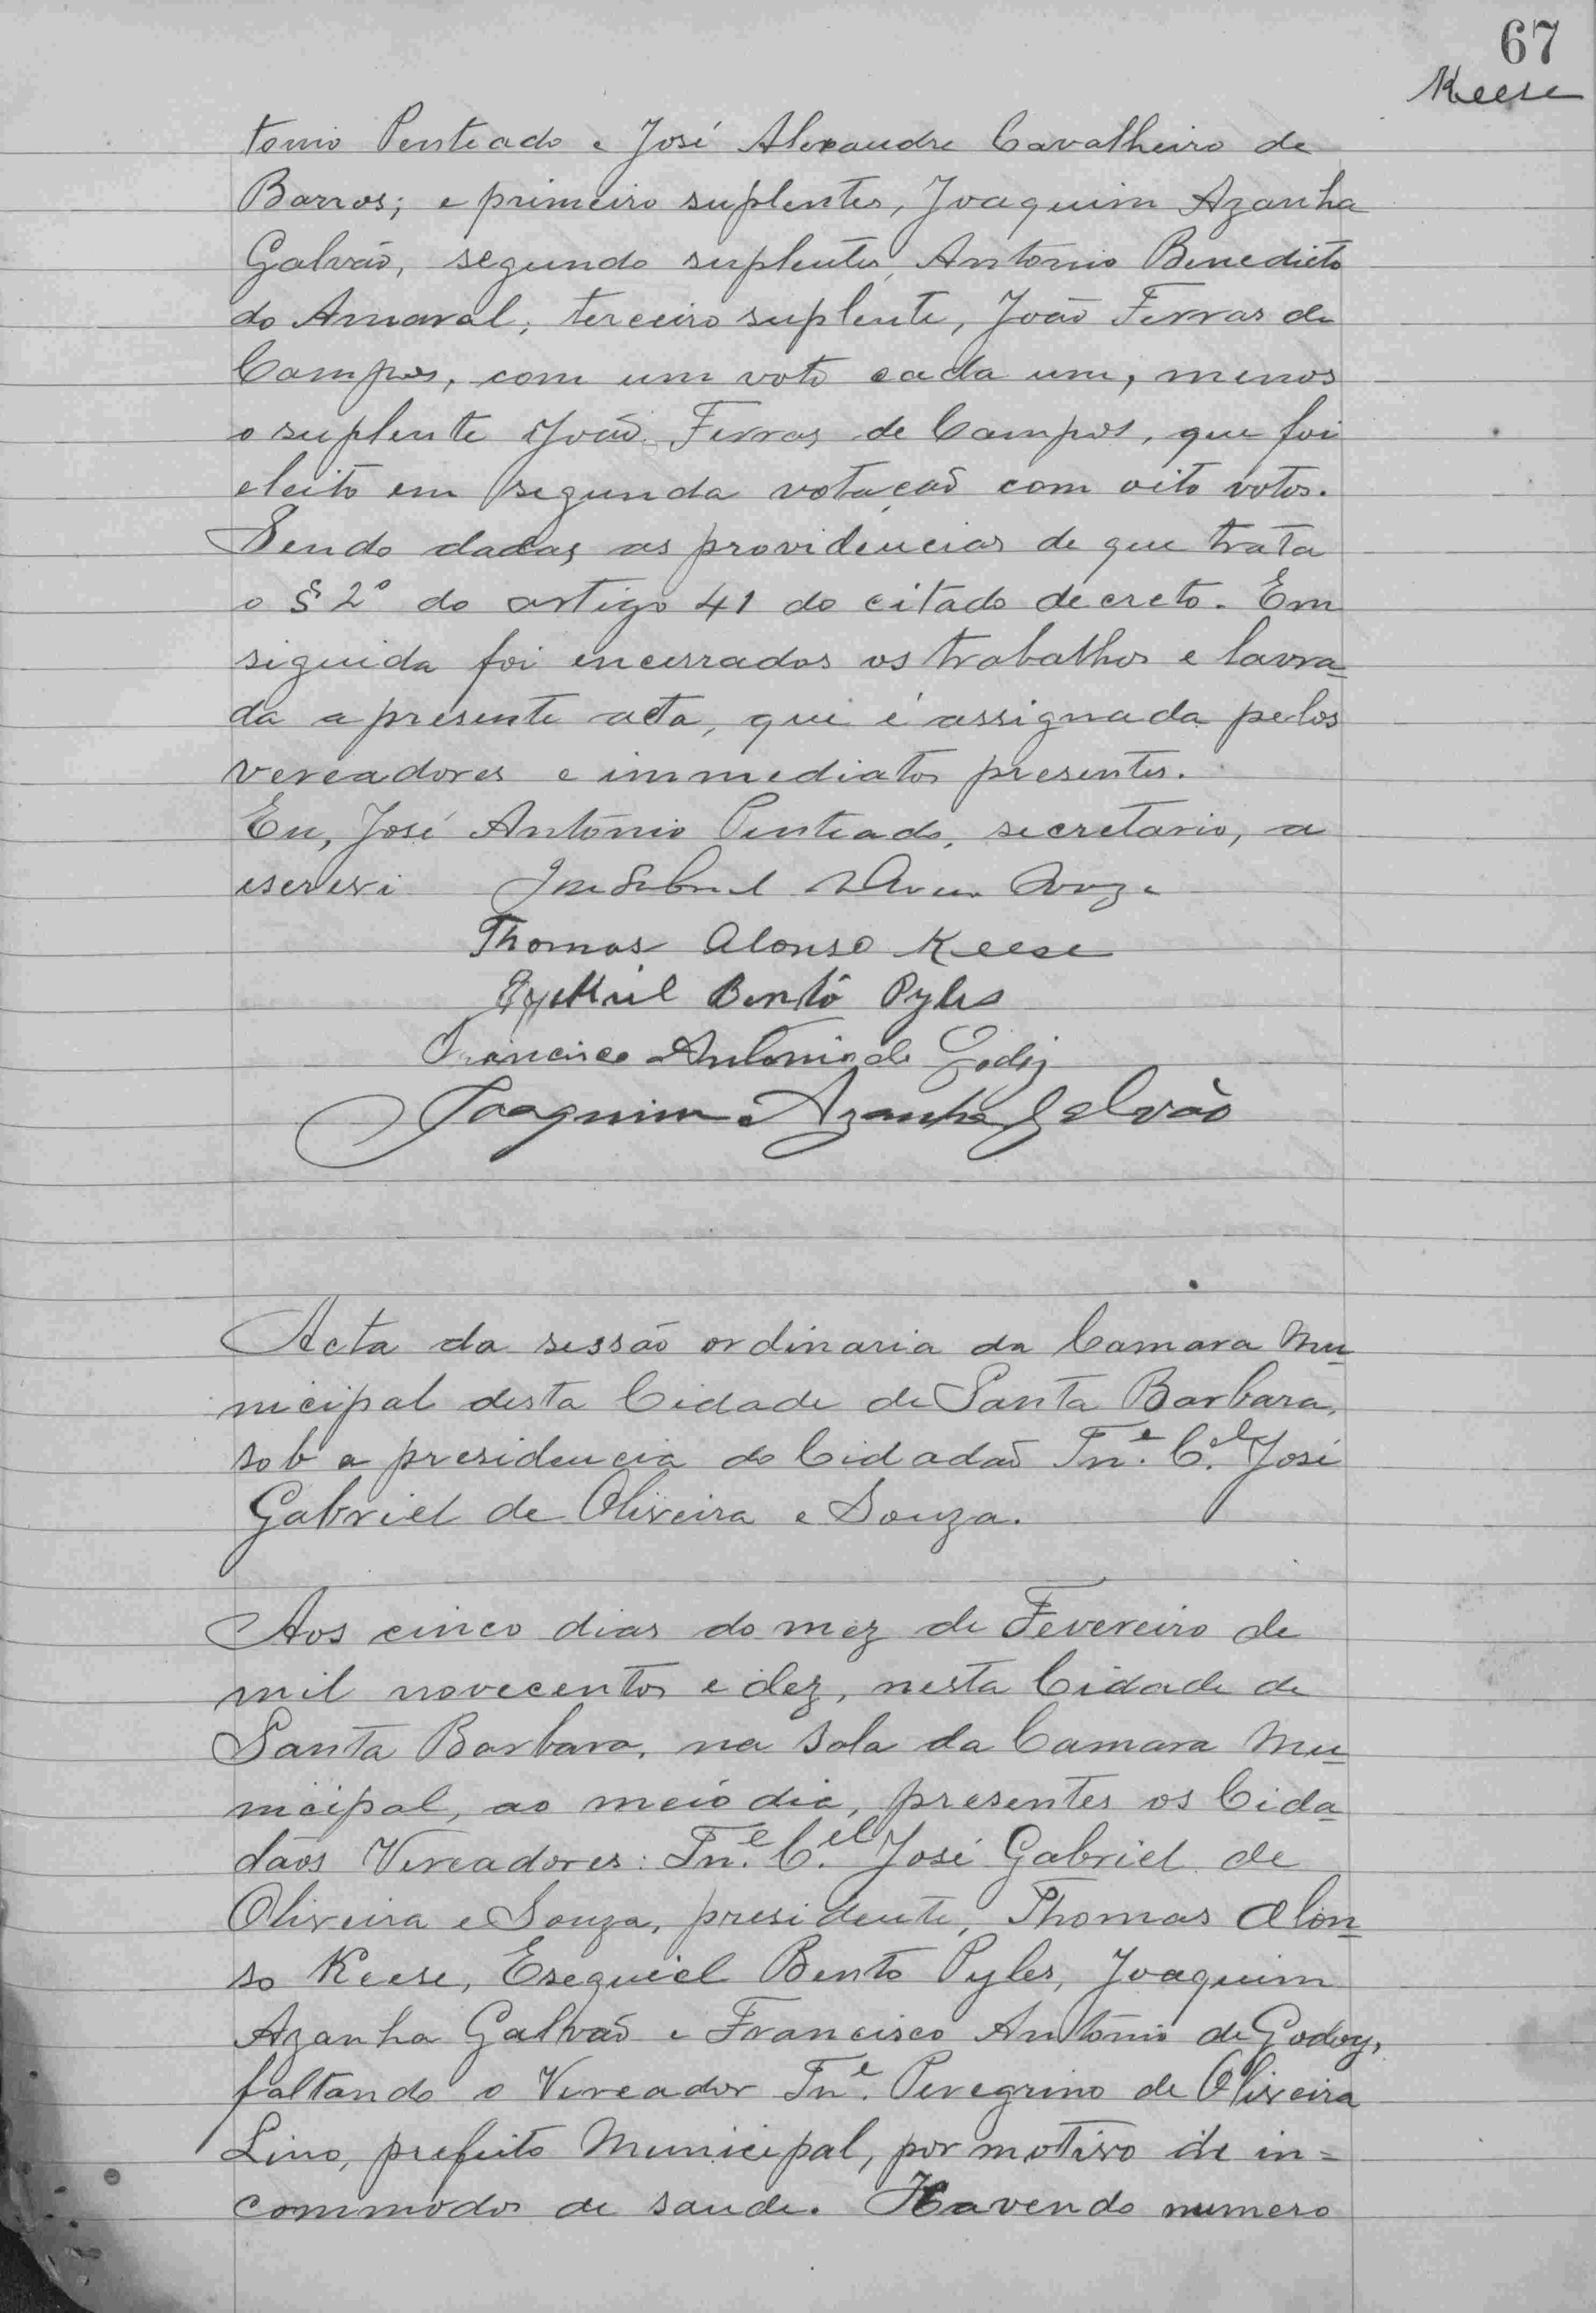 67
Keese
tonio Penteado e José Alexandre Cavalheiro de
Barros; e primeiro suplentes, Joaquim Azanha
Galvão, segundo suplentes, Antonio Benedicto
do Amaral; terceiro suplente, João Ferras de
Campos, com um voto cada um, menos
o suplente João Ferras de Campos, que foi
eleito em segunda votação com oito votos.
Sendo dadas as providencias de que trata
o § 2º do artigo 41 do citado decreto. Em
siguida foi encerrados os trabalhos e lavra=
da a presente acta, que é assignada pelos
vereadores e immediatos presentes.
Eu, José Antonio Penteado, secretario, a
escrevi
Thomas Alonso Keese
Bento Pyles
Francisco Antonio de Godoy
Joaquim Azanha Galvão
Acta da sessão ordinaria da Camara Mu=
nicipal desta Cidade de Santa Barbara,
sob a presidencia do Cidadão Tn.e C.el José
Gabriel de Oliveira e Souza.
Aos cinco dias do mez de Fevereiro de
mil novecentos e dez, nesta Cidade de
Santa Barbara, na sala da Camara Mu=
nicipal, ao meio dia, presentes os Cida=
dãos Vereadores: Tn.e C.el José Gabriel de
Oliveira e Souza, presidente, Thomas Alon=
so Keese, Esequiel Bento Pyles, Joaquim
Azanha Galvão e Francisco Antonio de Godoy,
faltando o Vereador Tn.e Peregrino de Oliveira
Lino, prefeito Municipal, por motivo de in=
commodos de saude. Havendo numero